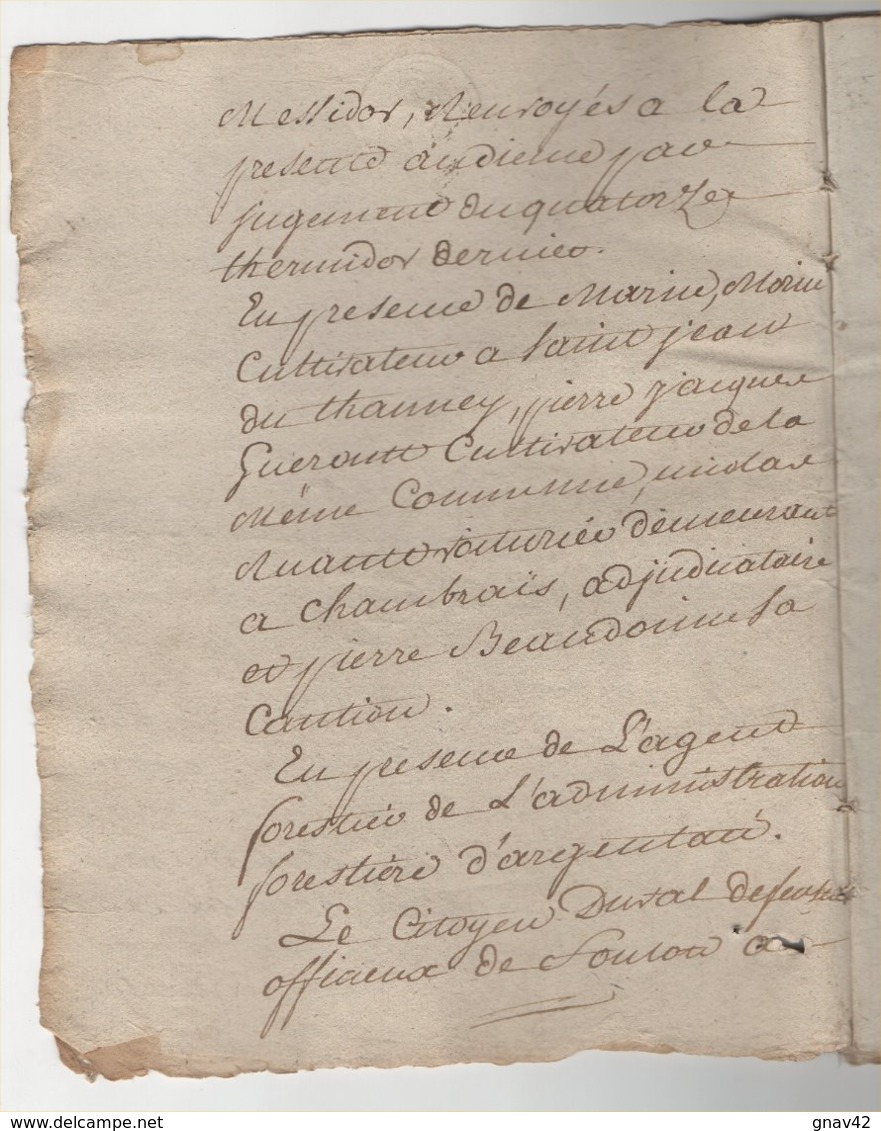 Messidor, Renvoyés a la
presente audience par
jugement du quatorze
thermidor dernier.
En presence de Marin, Morin
Cultivateur a Saint jean
du thenney, pierre jacques
Gueroult Cultivateur de la
Même Commune, nicolas
Ruault voiturier demeurant
a Chambrais, adjudicataire
et pierre Beaudouin sa
Caution.
En presence de L'agent
forestier de L'administration
forestiere d'argentan.
Le Citoyen Duval defenseur
officieux de Souton a
delcampe.net
gnav42